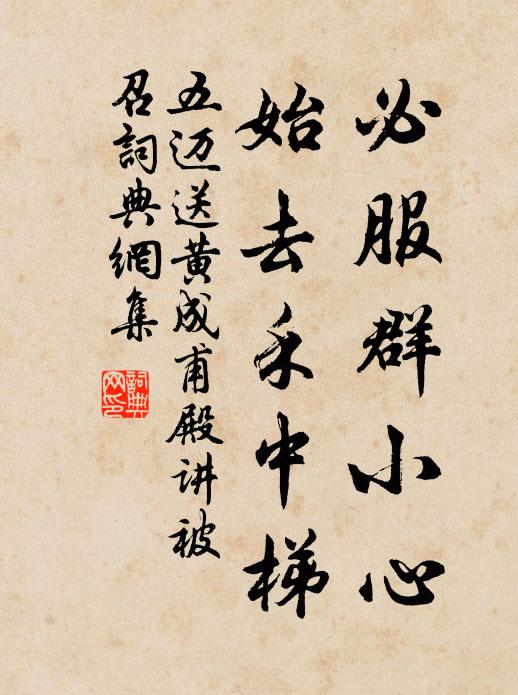 必服群小心
始去禾中梯
五迈送黄成甫殿讲被
召詞典網集
詞典网印